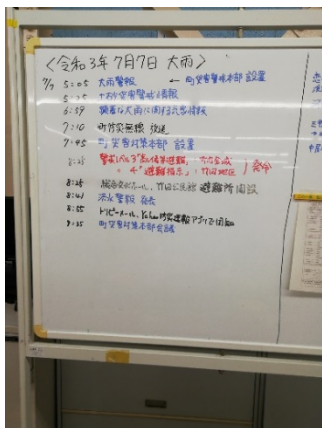 〈令和3年7月7日 大雨〉
7/7 5:05 大雨警報 ← 町災害警戒本部 設置
5:25 土砂災害警戒情報
6:59 顕著な大雨に関する気象情報
7:10 町防災無線 放送
7:45 町災害対策本部 設置
8:25 警戒レベル3"高齢者等避難"
〃 4"避難指示" 竹田地区 発令
8:25 竹田公民館 避難所開設
8:41 洪水警報 発表
8:55 トリピーメール、Yahoo防災速報アプリで周知
9:35 町災害対策本部会議